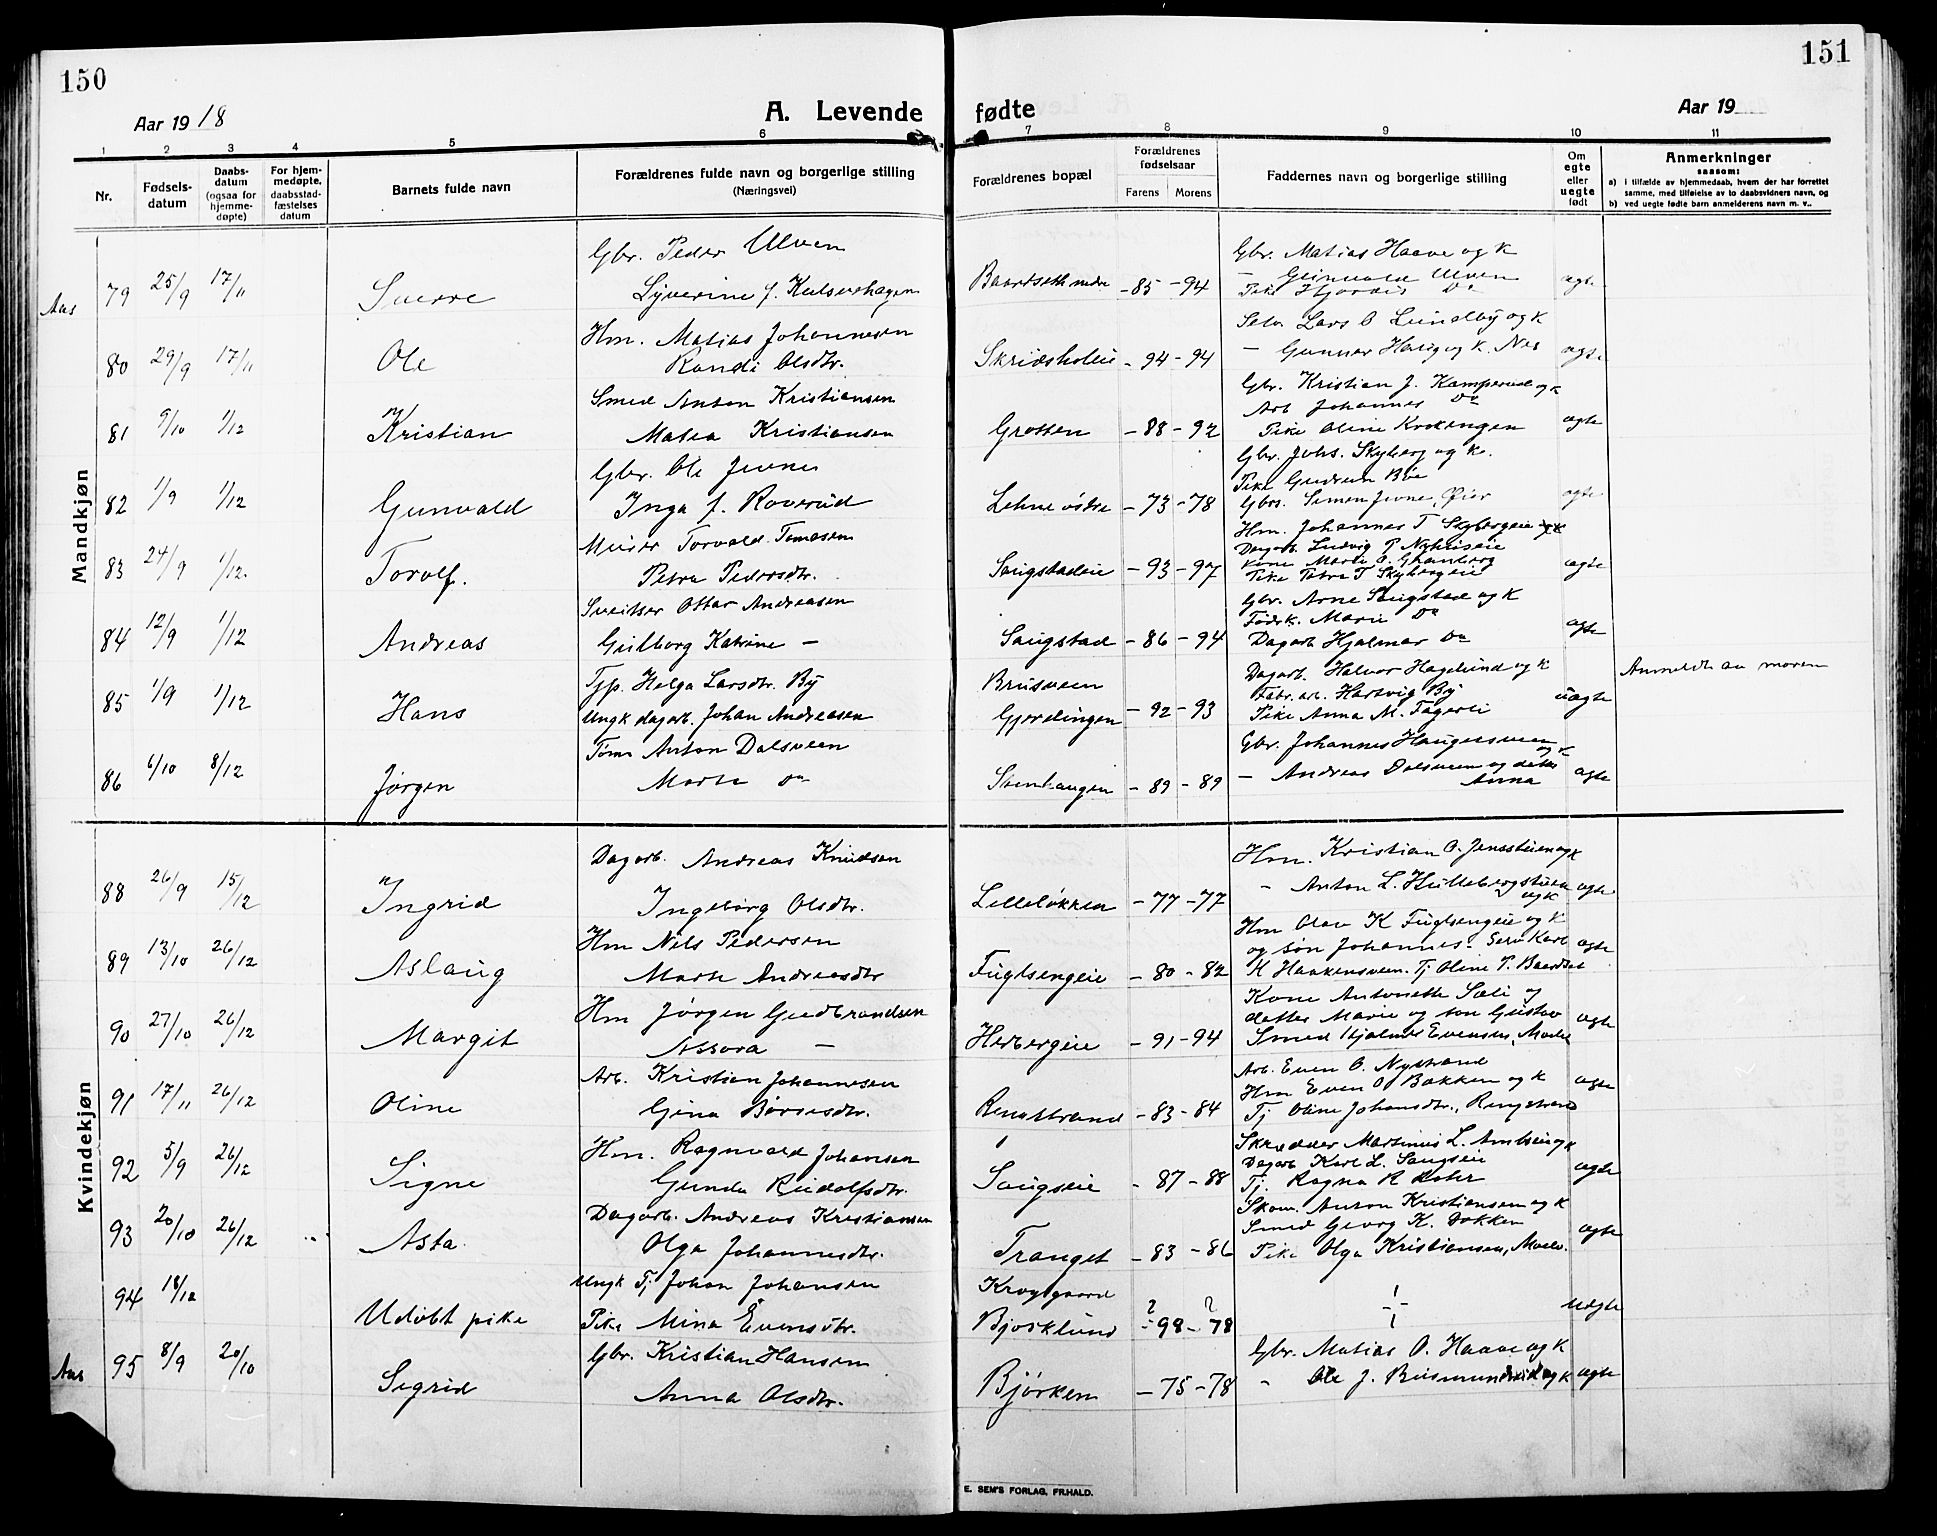 150
151
Aar 1918
A. Levende fødte
Aar 19
1 2 3 4 5 6 7 8 9 10 11
Nr.
Fødsels-
datum
Daabs-
datum
(ogsaa for
hjemme-
døpte)
For hjem-
medøpte,
daabsstad-
fæstelses
datum
Barnets fulde navn
Forældrenes fulde navn og borgerlige stilling
(Næringsvei)
Forældrenes bopæl
Forældrenes
fødselsaar
Farens Morens
Faddernes navn og borgerlige stilling
Om
egte
eller
uegte
født
Anmerkninger
saasom:
a) i tilfælde av hjemmedaab, hvem der har forrettet
samme, med tilføielse av to daabsvidners navn, og
b) ved uegte fødte barn anmelderens navn m. v..
Mandkjøn
Aas
79 25/9 17/11 Sverre
Gbr. Peder Ulven
Lyverine f. Kulsvehagen
Baardseth nedre -85 -94
Gbr. Matias Haave og K
- Grinvald Ulven
Pike Hjordis Do
egte
80 29/9 17/11 Ole
Hm. Matias Johannesen
Randi Olsdtr.
Skridsholeie -94 -94
Selv. Lars O Lundby og K
- Gunnar Haug og K. Nes
egte
81 9/10 1/12 Kristian
Smed Anton Kristiansen
Matea Kristiansen
Grotten -88 -92
Gbr. Kristian J. Kamperud og K
Arb Johannes Do
Pike Oline Krokengen
egte
82 1/9 1/12 Gunvald
Gbr. Ole Jevne
Inga f. Roverud
Lehne østre -73 -78
Gbr. Johs. Skyberg og K.
Pike Gudrun Bøe
Gbr. Simen Jevne, Øier
egte
83 24/9 1/12. Torolf.
Murer Torvald Tomasen
Petra Pedersdtr.
Saugstadeie -93 -97
Hm. Johannes T Skybergeie og K
Dagarb. Ludvig P Nyhuseie
Kone Marte O. Granberg
Pike Petra T Skybergeie
egte
84 12/9 1/12 Andreas
Sveitser Ottar Andreasen
Guilborg Katrine -
Saugstad -86 -94
Gbr. Arne Saugstad og K
Føderk. Marie Do
Dagarb Hjalmar Do
egte
85 1/9 1/12 Hans
Tjp. Helga Larsdtr. By
Ungk dagarb. Johan Andreasen
Brusveen
Gjørdingen -92 -93
Dagarb. Halvor Hagelund og K
Fabr. arb. Hartvig By
Pike Anna M. Fagerli
uegte
Anmeldt av moren
86 6/10 8/12 Jørgen
Tøm. Anton Dalsveen
Marte Do
Stenhaugen -89 -89
Gbr. Johannes Haugersveen og K
- Andreas Dalsveen og datter
Anna
egte
Kvindekjøn
88 26/9 15/12 Ingrid
Dagarb. Andreas Knudsen
Ingeborg Olsdtr.
Lilleløkken -77 -77
Hm. Kristian O. Jensstuen og K
- Anton L. Hullebergstuen
og K
egte
89 13/10 26/12 Aslaug
Hm Nils Pedersen
Marte Andreasdtr
Fuglsengeie -80 -82
Hm Olav K Fuglsengeie og K
og søn Johannes - Gerv Karl
K Haakensveen. Tj Oline P. Baardset
egte
90 27/10 26/12 Margit
Hm Jørgen Gudbrandsen
Assora -
Herbergeie -91 -94
Kone Antonette Sæli og
datter Marie og søn Gustav
Smed Hjalmar Evensen, Moelv
egte
91 17/11 26/12 Oline
Arb. Kristian Johannesen
Gina Børresdtr.
Renastrand -83 -84
Arb. Even O. Nystrand
Hm Even O. Bakken og K
Tj Oline Johansdtr., Ringstrand
egte
92 5/9 26/12 Signe
Hm. Ragnvald Johansen
Gunda Rudolfsdtr.
Saugseie -87 -88
Skrædder Martinius L. Amlien og K
Dagarb Karl L. Saugseie
Tj. Ragna R Rohr
egte
93 20/10 26/12 Asta.
Dagarb. Andreas Kristiansen
Olga Johannesdtr.
Tranget -83 -86
Skom. Anton Kristiansen og K
Smed Georg K. Dokken
Pike Olga Kristiansen, Moelv.
egte
94 18/12 Udøbt pike
Ungk Tj. Johan Johansen
Pike Mina Evensdtr.
Kroggaard
Bjørklund ? -98 ? -78
uegte
Aas
95 8/9 20/10 Sigrid
Gbr. Kristian Hansen
Anna Olsdtr.
Bjørken -75 -78
Gbr. Matias O. Haave og K
- Ole J. Rismundrud og K
egte
E. SEM'S FORLAG, FR.HALD.